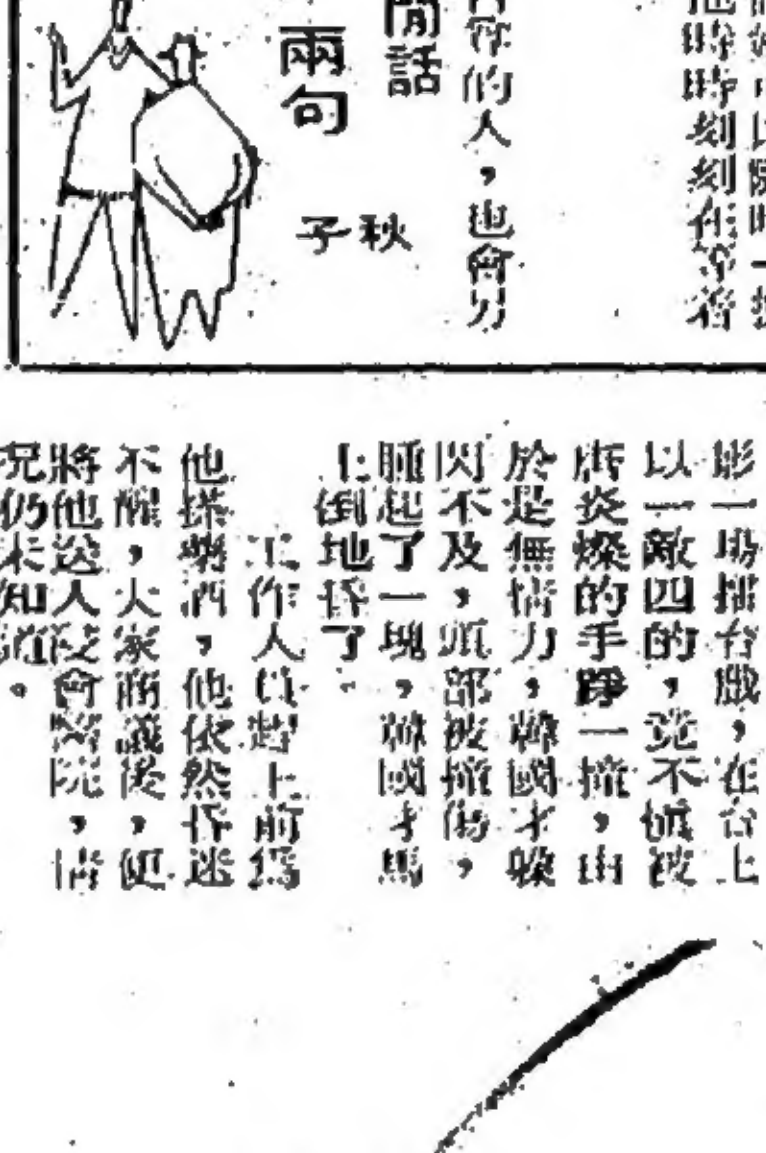 他時時刻刻在等着
的人，也會另
閒話
兩句
秋子
影一場擂台戲，在台上
以一敵四的，竟不慎被
唐炎燦的手踭一撞，由
於是無情力，韓國才躲
閃不及，頭部被撞傷，
腫起了一塊，韓國才馬
上倒地昏了。
工作人員趕上前為
他搽藥酒，他依然昏迷
不醒，大家商議後，便
將他送人浸會醫院，情
況仍未知道。